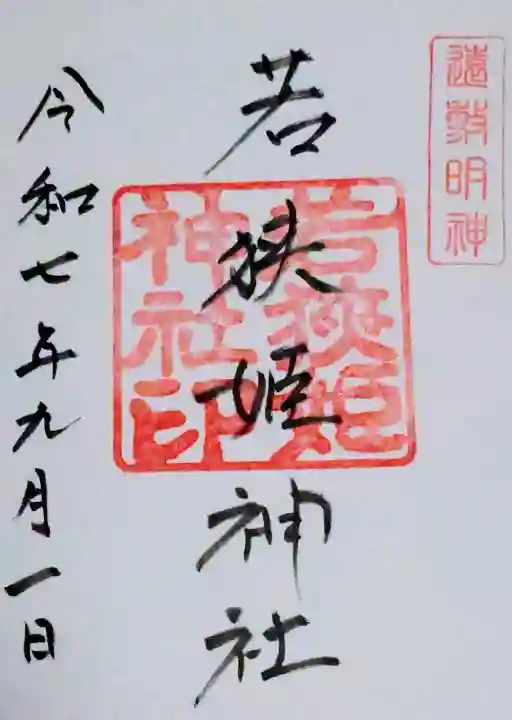 遠敷明神
若狭姫神社
若狭姫
神社印
令和七年九月一日